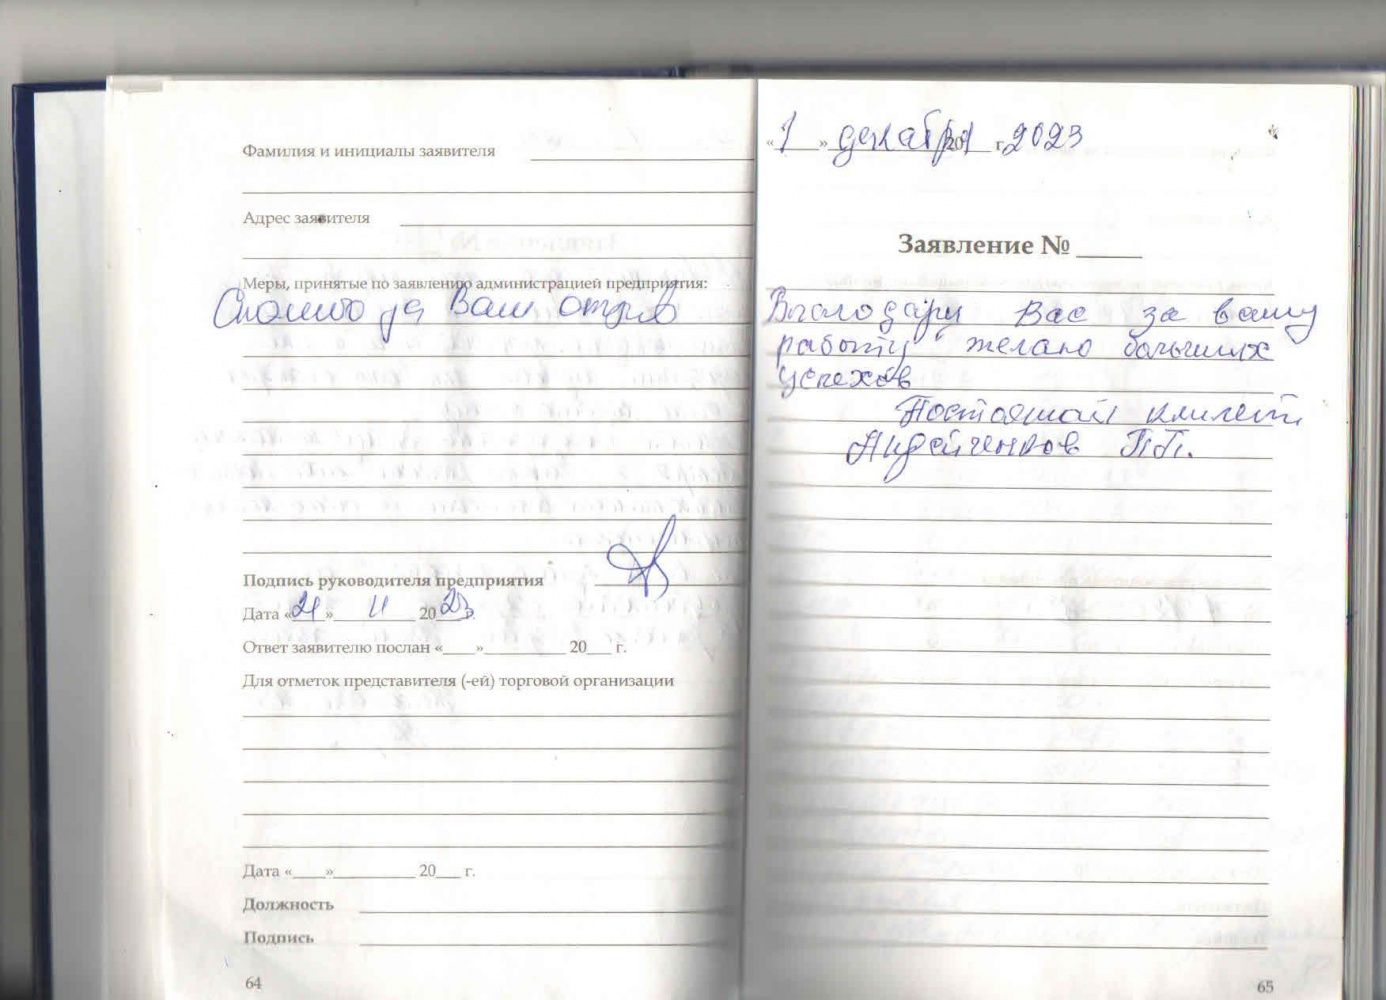 Фамилия и инициалы заявителя
Адрес заявителя
Меры, принятые по заявлению администрацией предприятия:
Спасибо за Ваш отзыв
Подпись руководителя предприятия
Дата «21» 11 2023 г.
Ответ заявителю послан «___»__________ 20___ г.
Для отметок представителя (-ей) торговой организации
Дата «____»__________ 20___ г.
Должность
Подпись
64
«1» декабря 20 г. 2023
Заявление № _____
Благодарю Вас за вашу
работу желаю больших
успехов
Постоянный клиент
Андрейченков П.П.
65